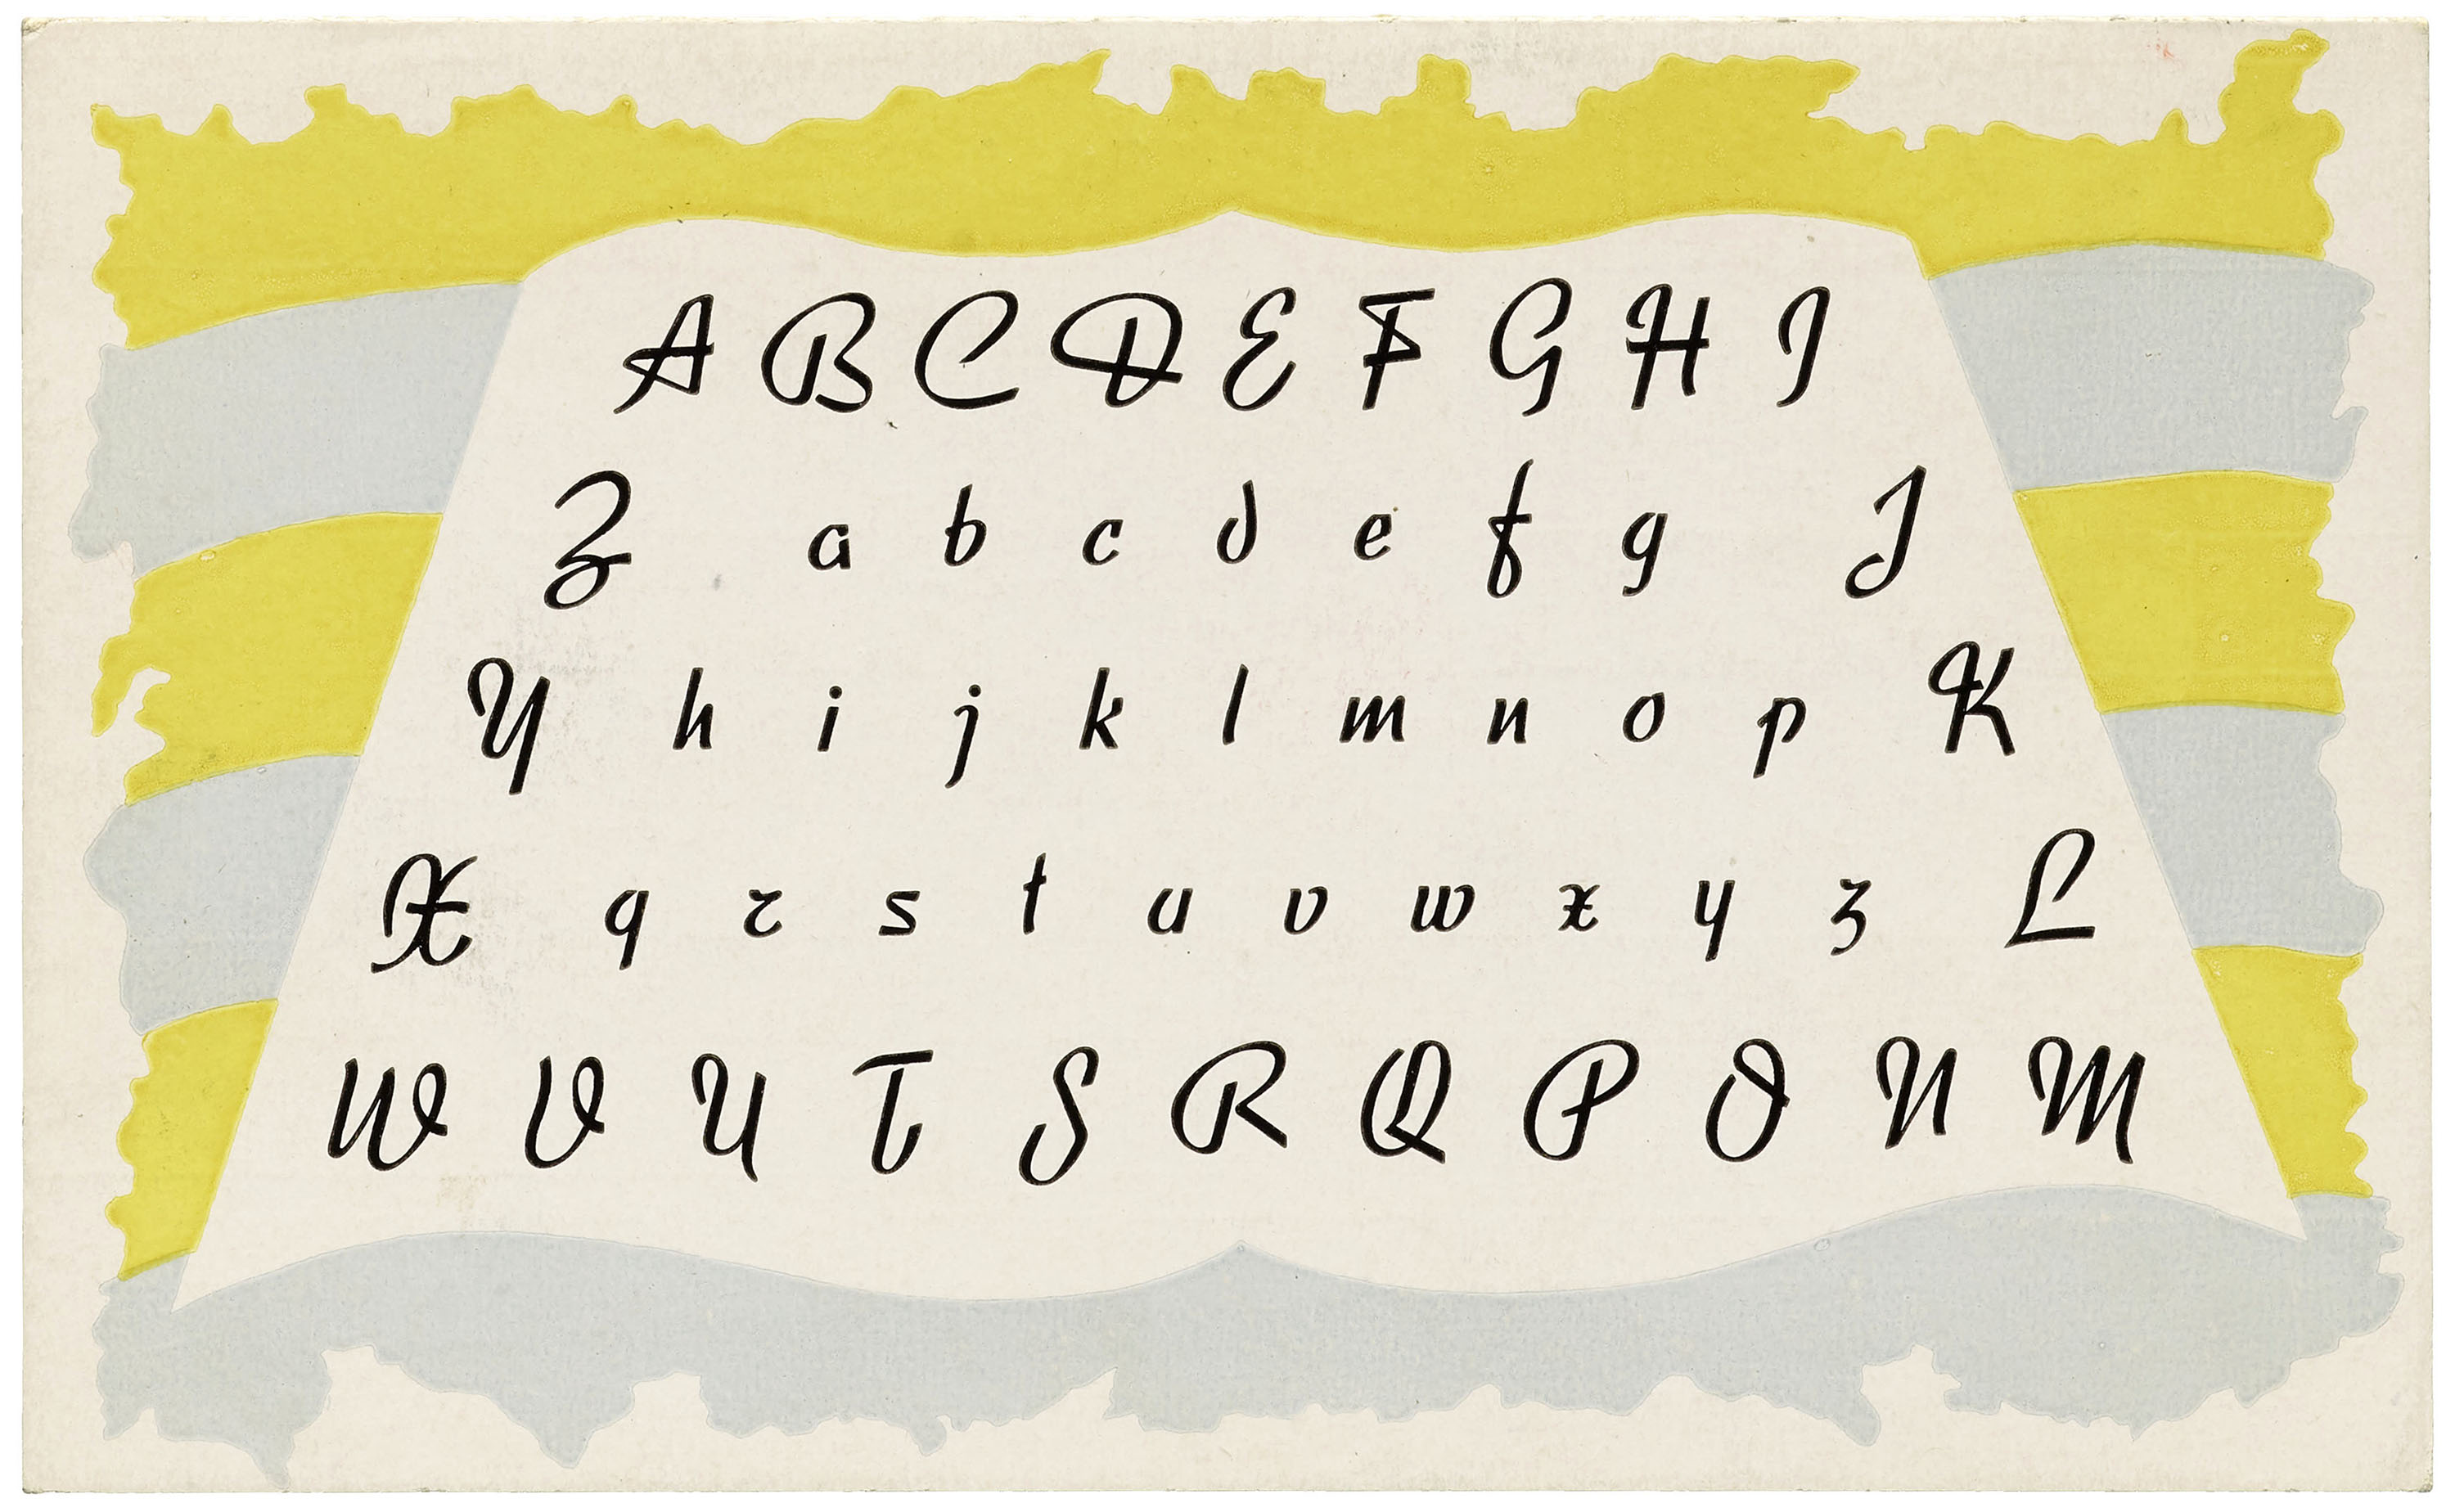 A B C D E F G H I
Z a b c d e f g J
Y h i j k l m n o p K
X q r s t u v w x y z L
W V U T S R Q P O N M